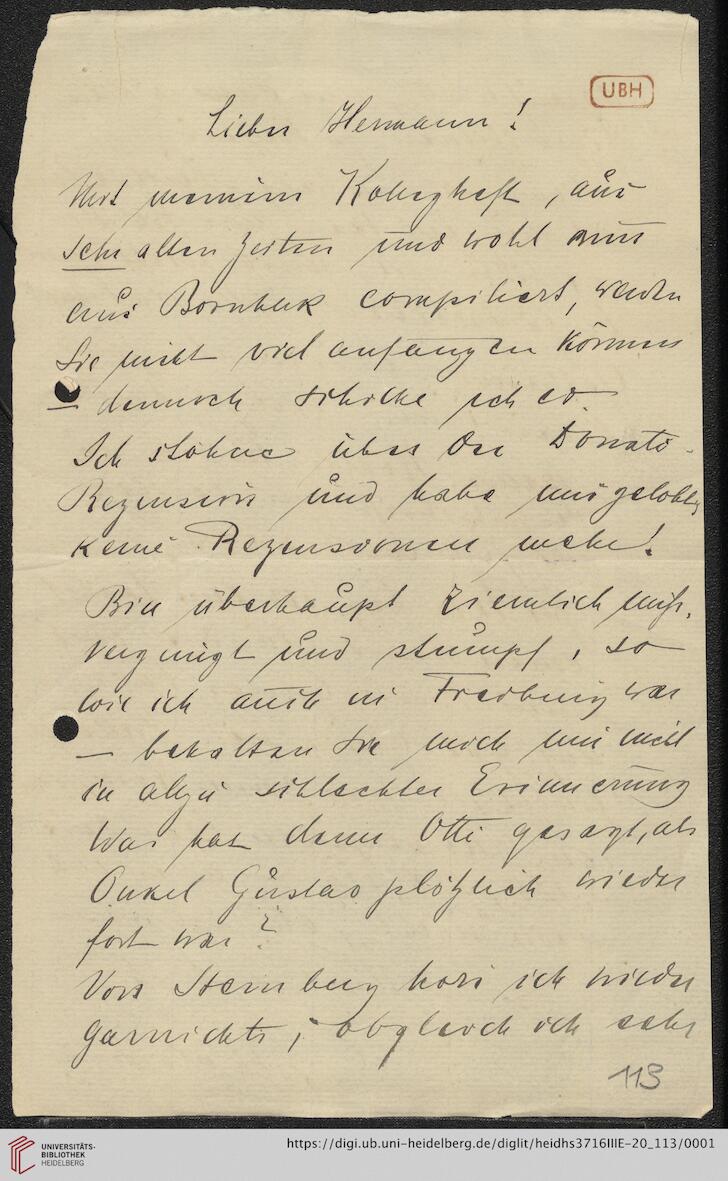 UBH
Lieber Hermann!
Mit meinem Kollegheft, aus
sehr alten Zeiten und wohl nur
aus Bornhak compiliert, werden
Sie nicht viel anfangen können
– dennoch schicke ich es
Ich stöhne über der Donati-
Rezension und habe mir gelobt,
keine Rezensionen mehr!
Bin überhaupt ziemlich miss-
vergnügt und stumpf, so
wie ich auch in Freiburg war
– behalten Sie mich nur nicht
in allzu schlechter Erinnerung
Was hat denn Otti gesagt, als
Onkel Gustav plötzlich wieder
fort war?
Von Sternberg höre ich wieder
garnichts, obgleich ich sehr
113
UNIVERSITÄTS-
BIBLIOTHEK
HEIDELBERG
https://digi.ub.uni-heidelberg.de/diglit/heidhs3716IIIE-20_113/0001